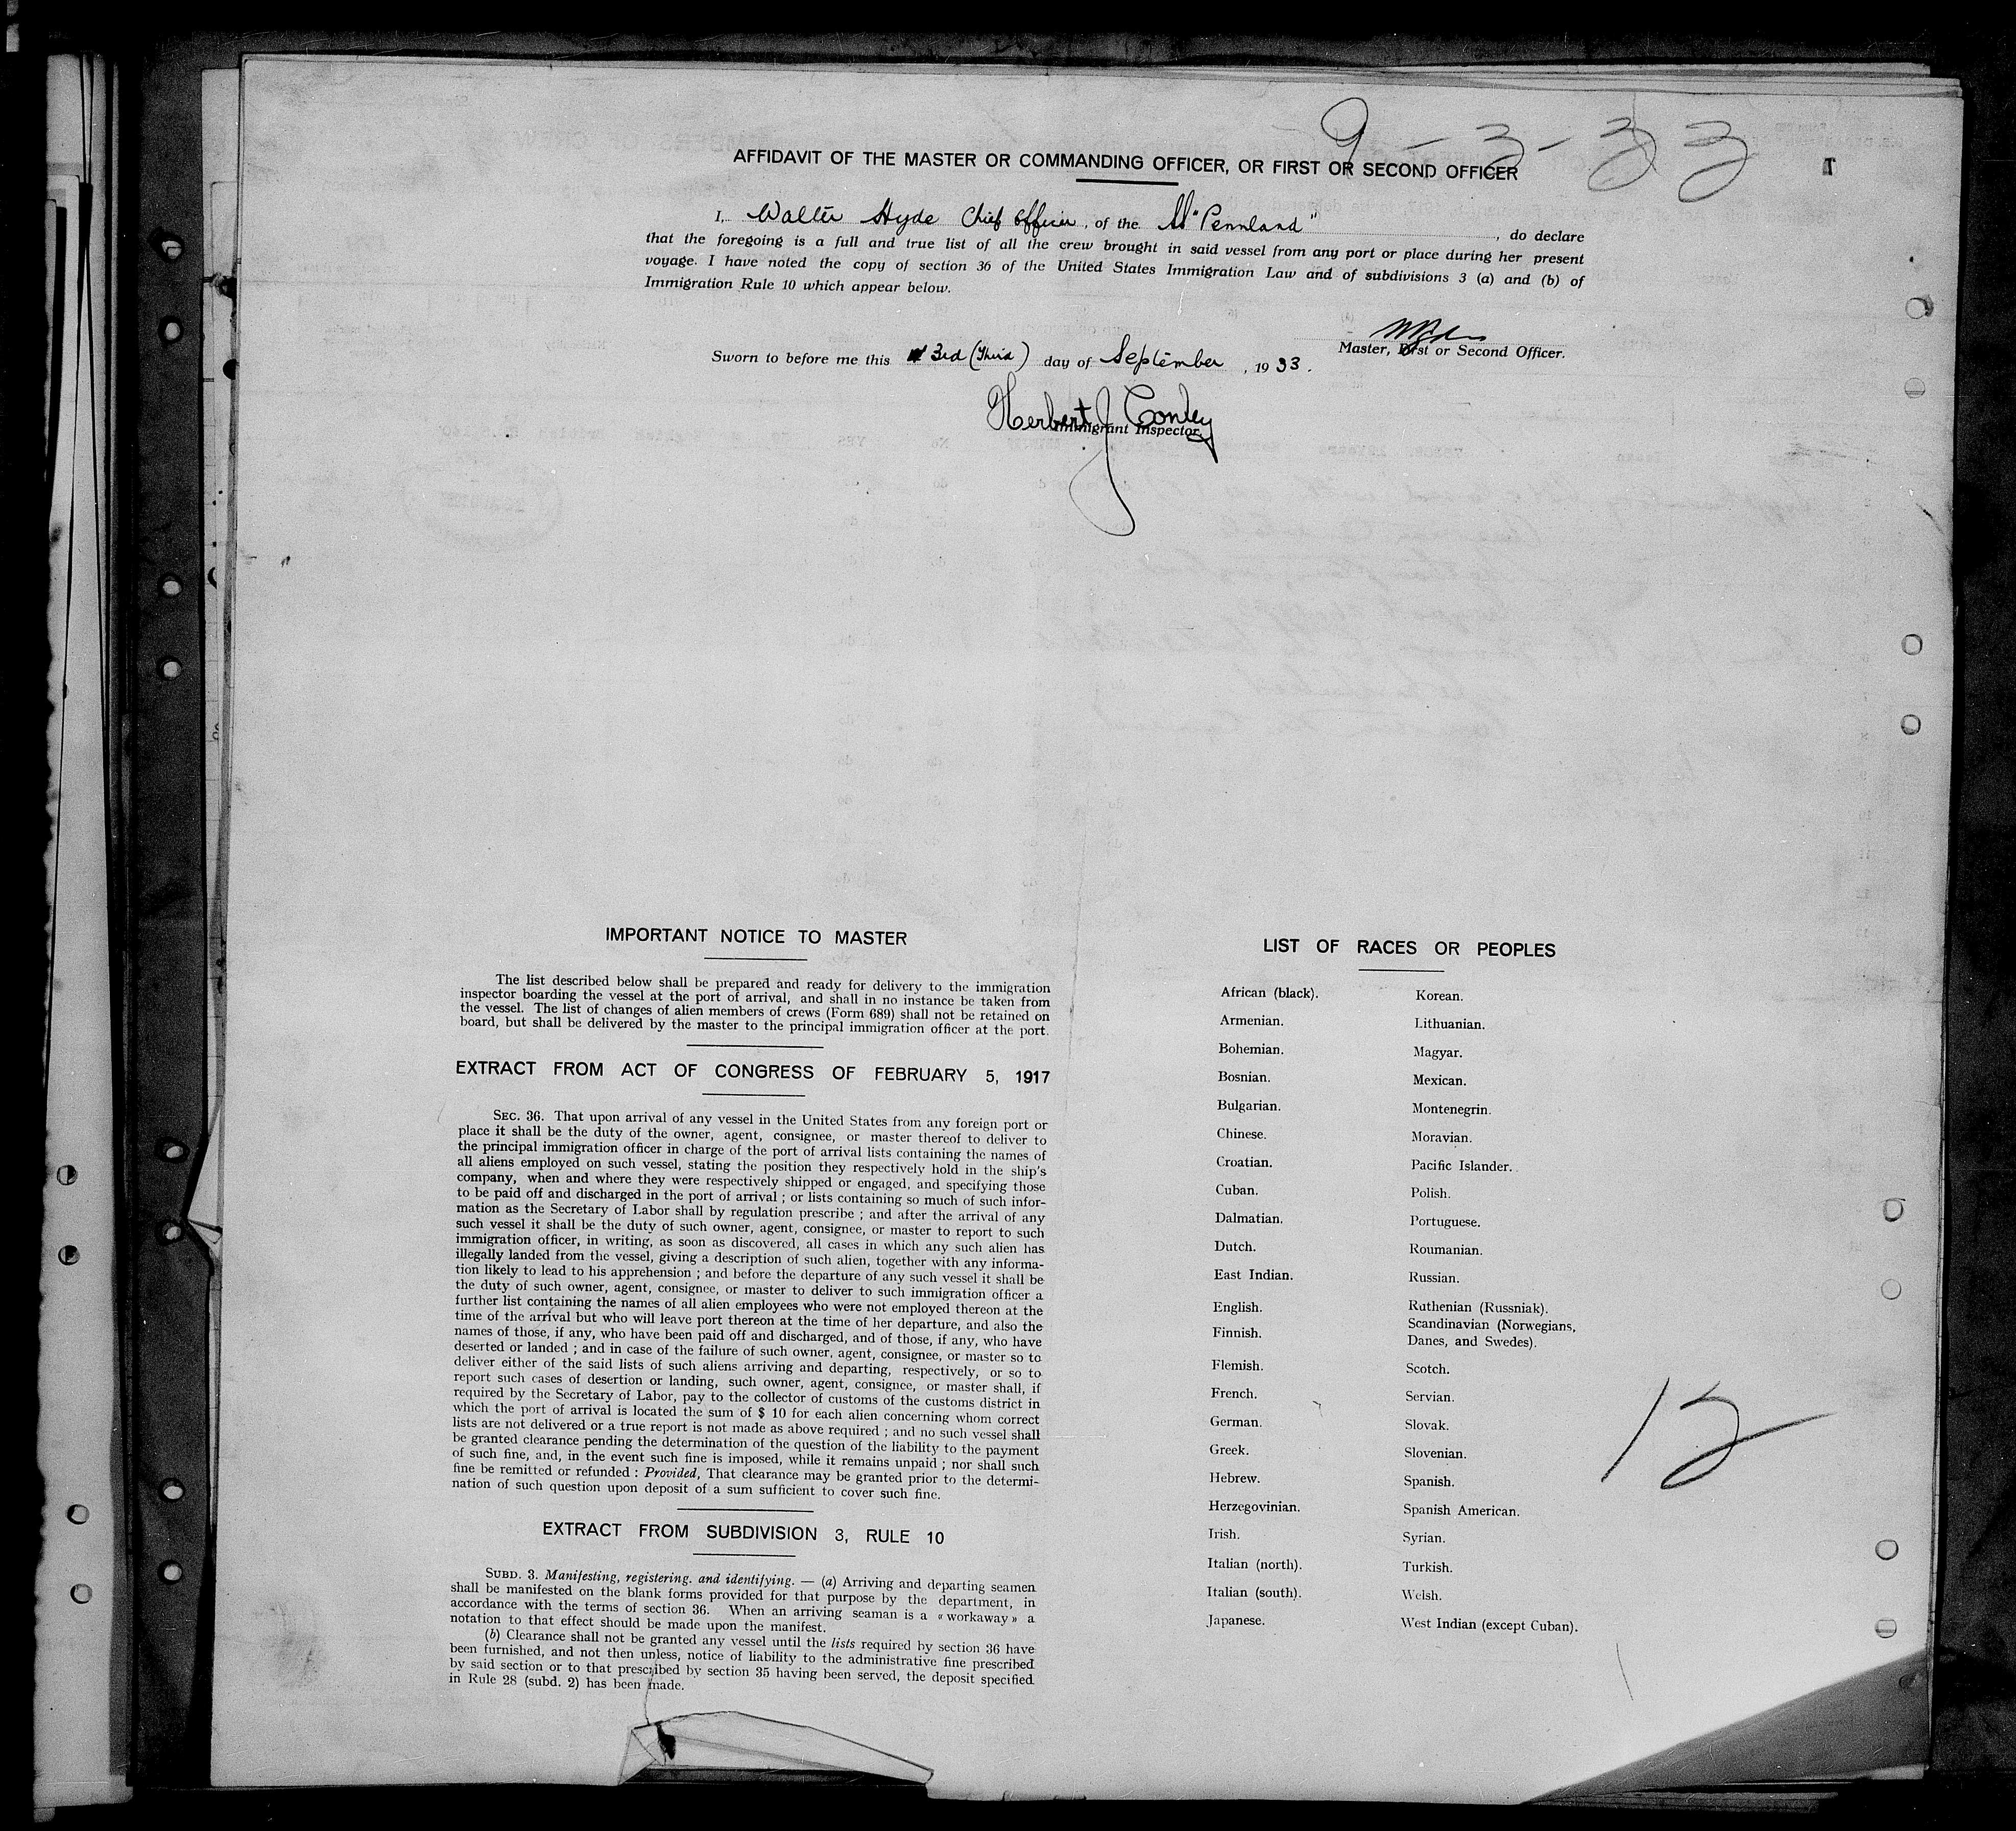 9-3-33
AFFIDAVIT OF THE MASTER OR COMMANDING OFFICER, OR FIRST OR SECOND OFFICER
I, Walter Hyde Chief Officer, of the "Pennland", do declare
that the foregoing is a full and true list of all the crew brought in said vessel from any port or place during her present
voyage. I have noted the copy of section 36 of the United States Immigration Law and of subdivisions 3 (a) and (b) of
Immigration Rule 10 which appear below.
Master, First or Second Officer.
Sworn to before me this 3rd (Third) day of September, 1933.
Herbert J Conley
Immigrant Inspector.
IMPORTANT NOTICE TO MASTER
The list described below shall be prepared and ready for delivery to the immigration
inspector boarding the vessel at the port of arrival, and shall in no instance be taken from
the vessel. The list of changes of alien members of crews (Form 689) shall not be retained on
board, but shall be delivered by the master to the principal immigration officer at the port.
EXTRACT FROM ACT OF CONGRESS OF FEBRUARY 5, 1917
SEC. 36. That upon arrival of any vessel in the United States from any foreign port or
place it shall be the duty of the owner, agent, consignee, or master thereof to deliver to
the principal immigration officer in charge of the port of arrival lists containing the names of
all aliens employed on such vessel, stating the position they respectively hold in the ship's
company, when and where they were respectively shipped or engaged, and specifying those
to be paid off and discharged in the port of arrival ; or lists containing so much of such infor-
mation as the Secretary of Labor shall by regulation prescribe ; and after the arrival of any
such vessel it shall be the duty of such owner, agent, consignee, or master to report to such
immigration officer, in writing, as soon as discovered, all cases in which any such alien has
illegally landed from the vessel, giving a description of such alien, together with any informa-
tion likely to lead to his apprehension ; and before the departure of any such vessel it shall be
the duty of such owner, agent, consignee, or master to deliver to such immigration officer a
further list containing the names of all alien employees who were not employed thereon at the
time of the arrival but who will leave port thereon at the time of her departure, and also the
names of those, if any, who have been paid off and discharged, and of those, if any, who have
deserted or landed ; and in case of the failure of such owner, agent, consignee, or master so to
deliver either of the said lists of such aliens arriving and departing, respectively, or so to
report such cases of desertion or landing, such owner, agent, consignee, or master shall, if
required by the Secretary of Labor, pay to the collector of customs of the customs district in
which the port of arrival is located the sum of $ 10 for each alien concerning whom correct
lists are not delivered or a true report is not made as above required ; and no such vessel shall
be granted clearance pending the determination of the question of the liability to the payment
of such fine, and, in the event such fine is imposed, while it remains unpaid ; nor shall such
fine be remitted or refunded : Provided, That clearance may be granted prior to the determi-
nation of such question upon deposit of a sum sufficient to cover such fine.
EXTRACT FROM SUBDIVISION 3, RULE 10
SUBD. 3. Manifesting, registering. and identifying. — (a) Arriving and departing seamen
shall be manifested on the blank forms provided for that purpose by the department, in
accordance with the terms of section 36. When an arriving seaman is a « workaway » a
notation to that effect should be made upon the manifest.
(b) Clearance shall not be granted any vessel until the lists required by section 36 have
been furnished, and not then unless, notice of liability to the administrative fine prescribed
by said section or to that prescribed by section 35 having been served, the deposit specified
in Rule 28 (subd. 2) has been made.
LIST OF RACES OR PEOPLES
African (black).
Armenian.
Bohemian.
Bosnian.
Bulgarian.
Chinese.
Croatian.
Cuban.
Dalmatian.
Dutch.
East Indian.
English.
Finnish.
Flemish.
French.
German.
Greek.
Hebrew.
Herzegovinian.
Irish.
Italian (north).
Italian (south).
Japanese.
Korean.
Lithuanian.
Magyar.
Mexican.
Montenegrin.
Moravian.
Pacific Islander.
Polish.
Portuguese.
Roumanian.
Russian.
Ruthenian (Russniak).
Scandinavian (Norwegians,
Danes, and Swedes).
Scotch.
Servian.
Slovak.
Slovenian.
Spanish.
Spanish American.
Syrian.
Turkish.
Welsh.
West Indian (except Cuban).
12